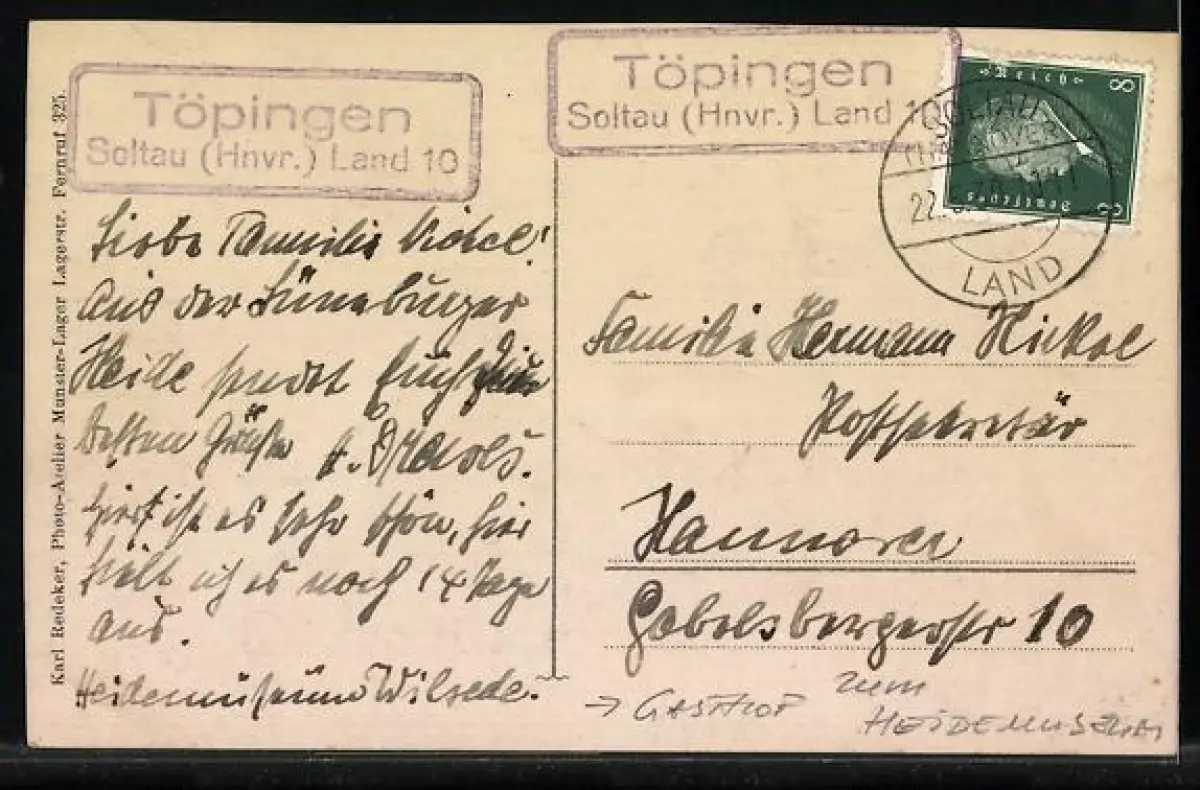 Töpingen
Soltau (Hnvr.) Land 10
Töpingen
Soltau (Hnvr.) Land 10
Deutsches Reich
8 8
SOLTAU
(HANNOVER)
LAND
Karl Redeker, Photo-Atelier Munster-Lager Lagerstr. Fernruf 325.
Liebe Familie Nickel!
Aus der Lüneburger
Heide sendet Euch die
besten Grüße
Hier ist es sehr schön, hier
hält ich es noch 14 Tage
aus.
Heidemuseum Wilsede.
Familie Hermann Nickel
Postsekretär
Hannover
Gabelsbergerstr 10
→ GASTHOF zum
HEIDEMUSEUM